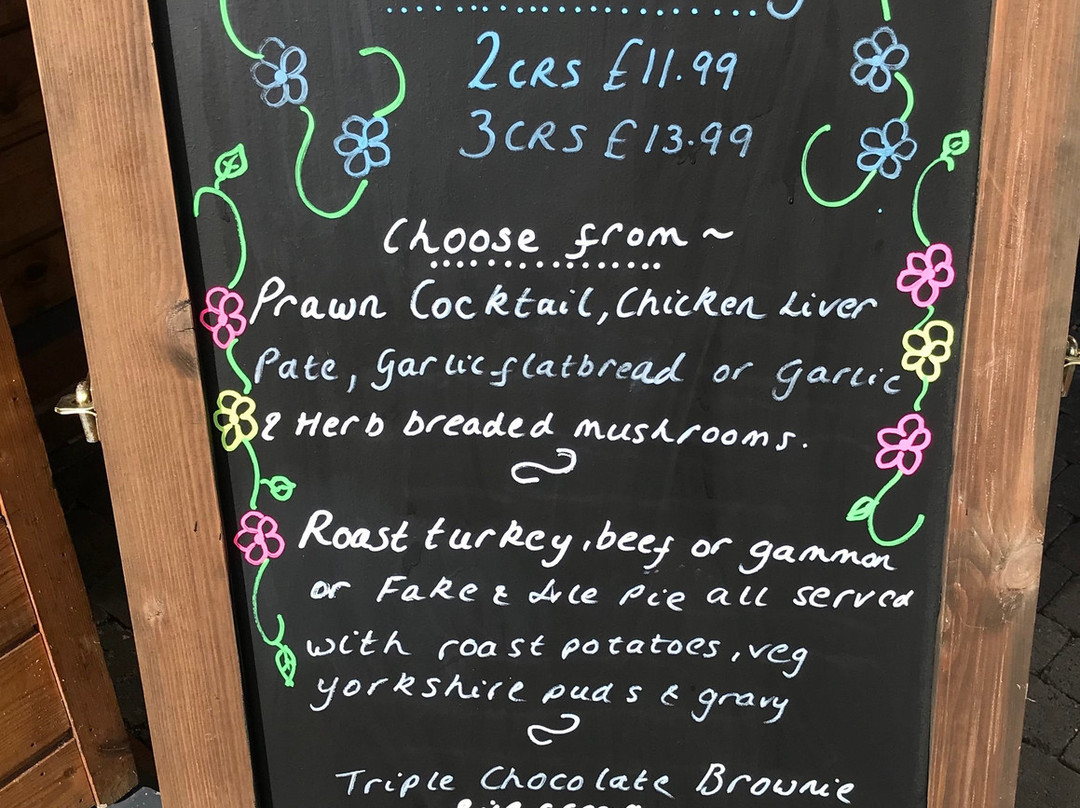 2 CRS £11.99
3 CRS £13.99
Choose from ~
Prawn Cocktail, Chicken Liver
Pate, Garlic flatbread or Garlic
& Herb breaded mushrooms.
Roast turkey, beef or gammon
or Fake & Ale Pie all served
with roast potatoes, veg
yorkshire puds & gravy
Triple Chocolate Brownie